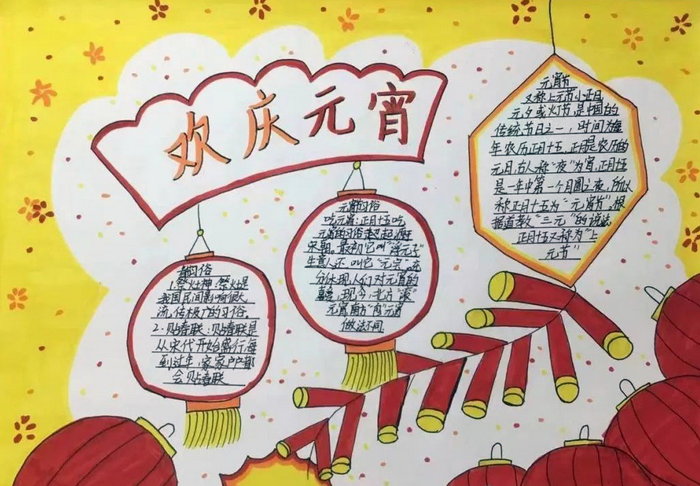 欢庆元宵
元宵节
又称上元节小正月
元夕或灯节,是中国的
传统节日之一,时间为每
年农历正月十五,正月是农历的
元月,古人称"夜"为宵,正月十五
是一年中第一个月圆之夜,所以
称正月十五为"元宵节"。根
据道教"三元"的说法
正月十五又称为"上
元节"
元宵习俗
吃元宵:正月十五吃
元宵的习俗
宋朝,最初它叫"浮元子"
生意人还叫它"元宝"
现人们对元宵的
喜爱,现今,北方"滚"
元宵南方"包"元宵
做法不同
春节习俗
1.祭灶神:祭灶是
我国民间影响很大
流传极广的习俗。
2.贴春联:贴春联是
从宋代开始盛行,每
到过年,家家户户都
会贴春联